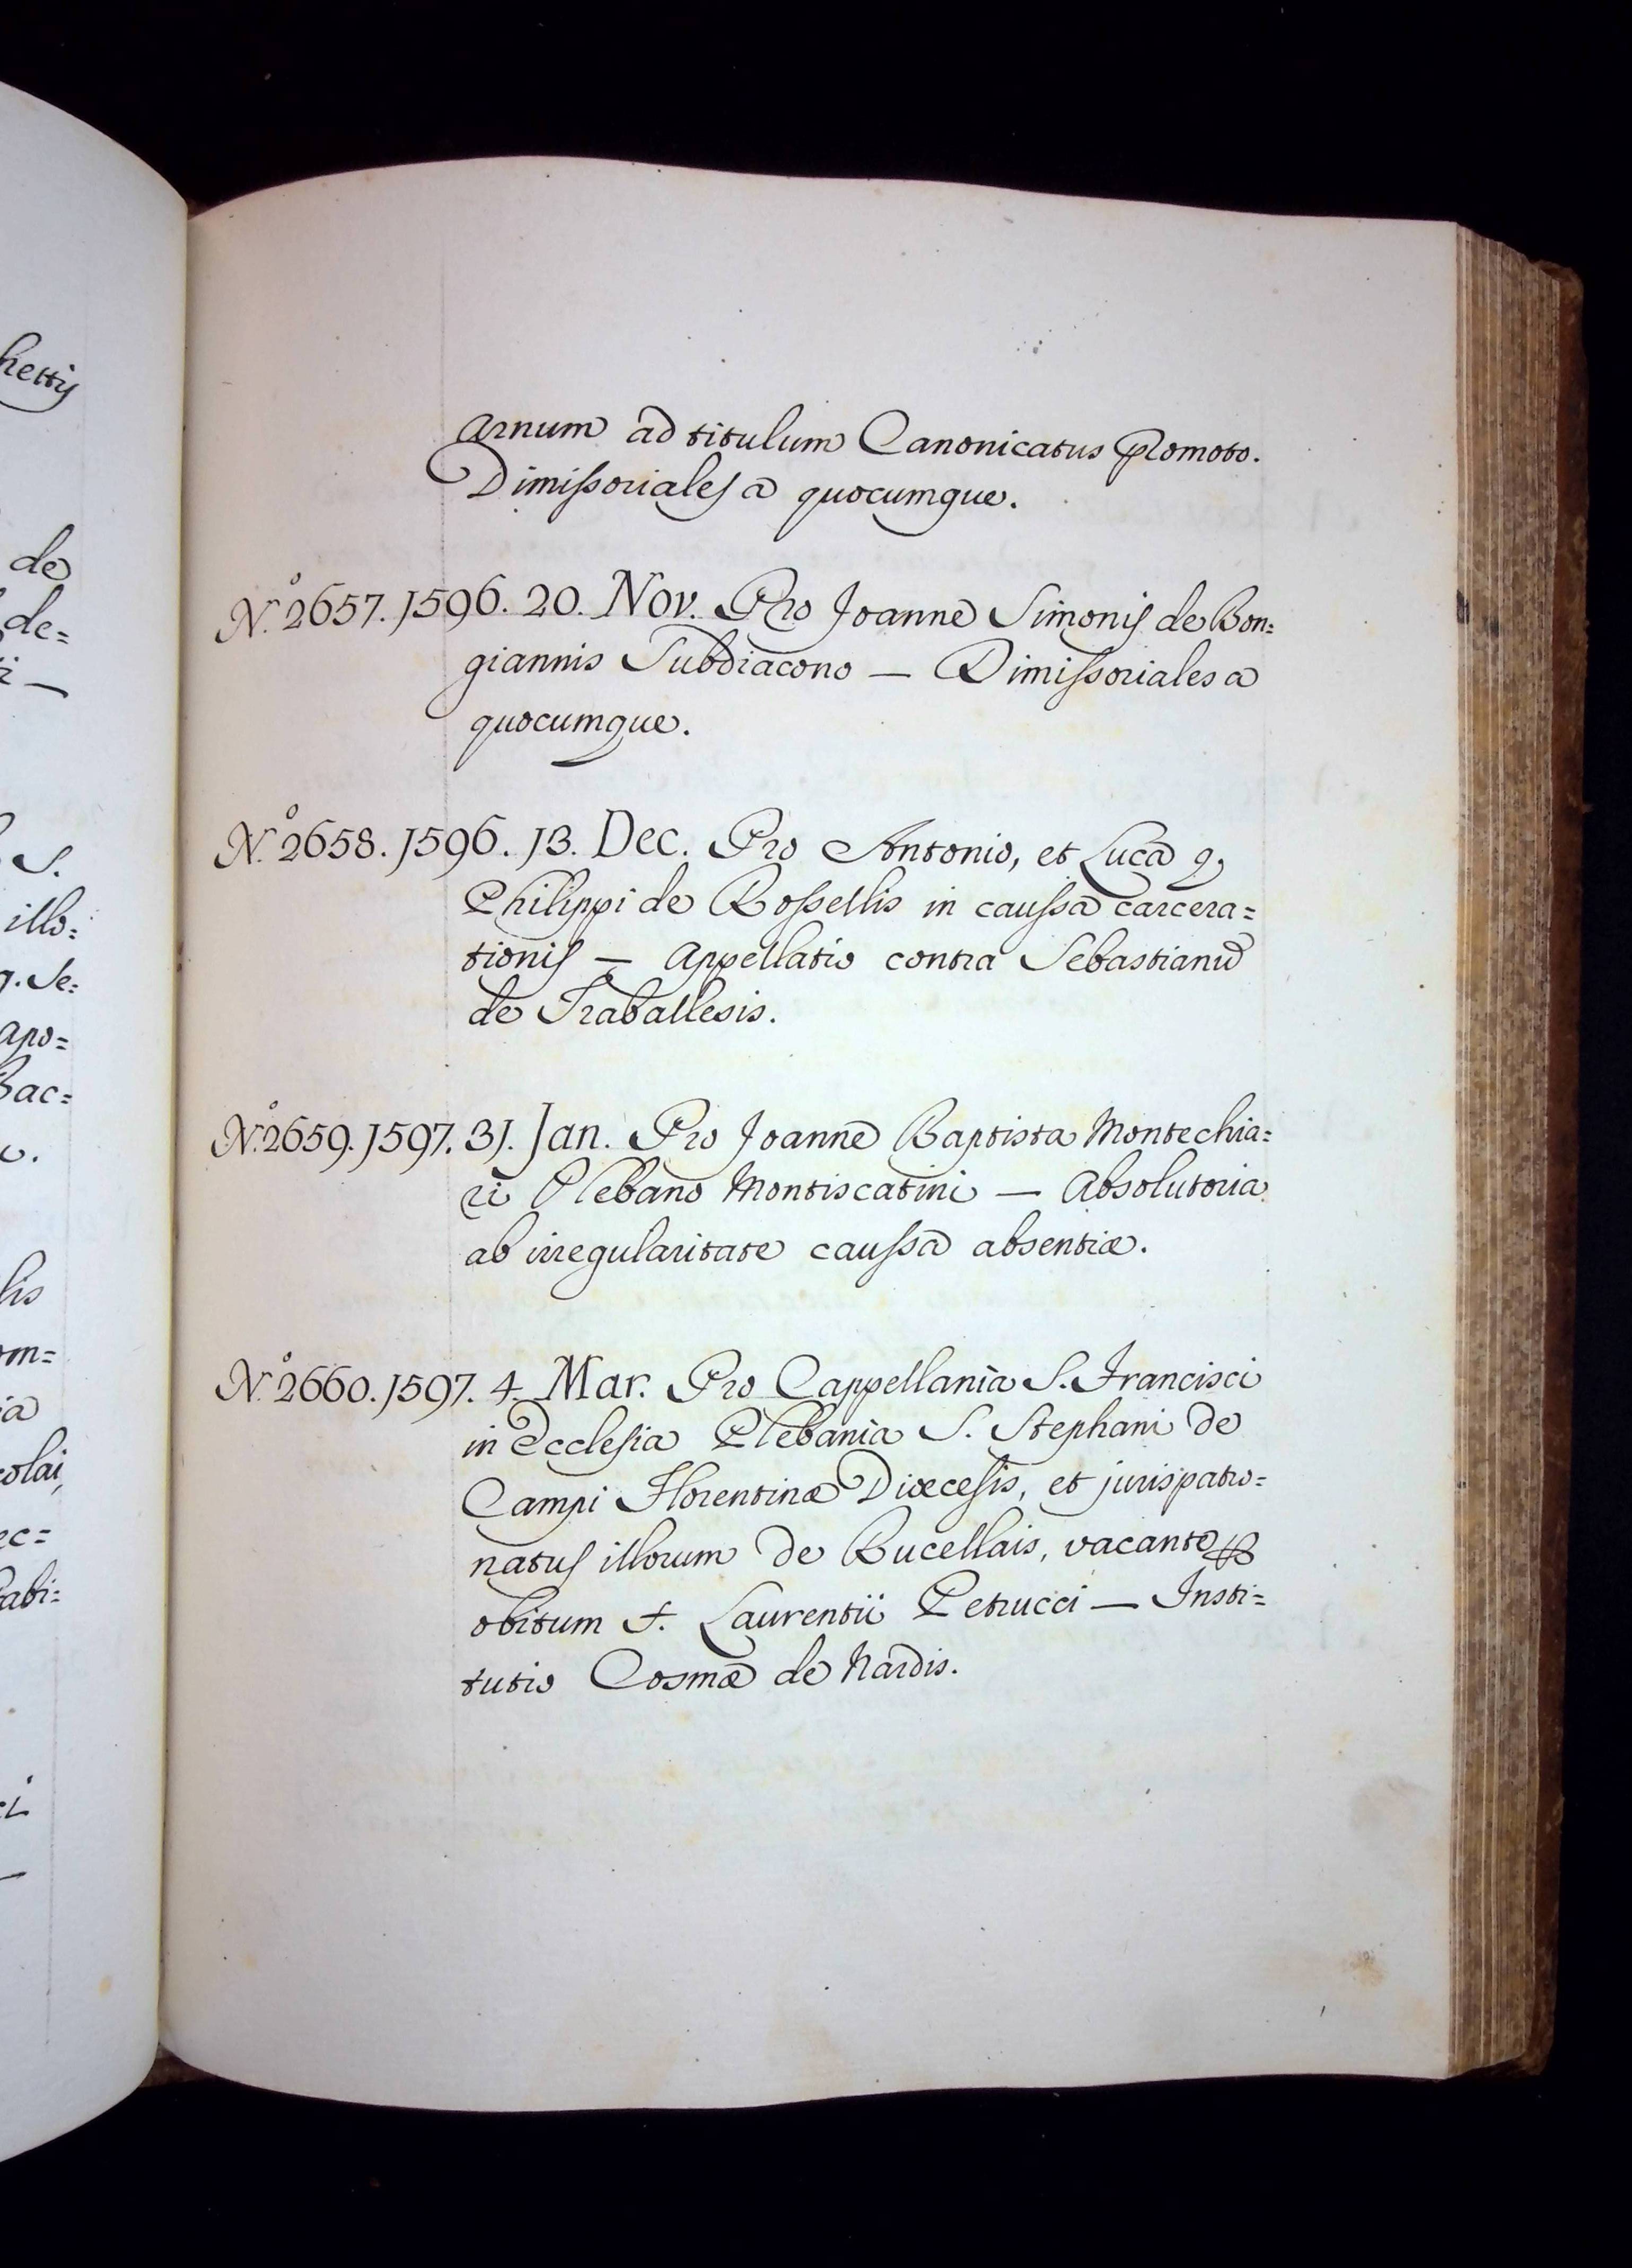 hettis
de
de=
S.
illo=
q. Se=
apo=
Bac=
lis
om=
ia
colai,
ec=
abi=
ci
arnum ad titulum Canonicatus promoto.
Dimissoriales a quocumque.
N.º 2657. 1596. 20. Nov. Pro Joanne Simonis de Bon=
giannis Subdiacono — Dimissoriales a
quocumque.
N.º 2658. 1596. 13. Dec. Pro Antonio, et Luca q.
Philippi de Rossellis in caussa carcera=
tionis — Appellatio contra Sebastianũ
de Traballesis.
N.º 2659. 1597. 31. Jan. Pro Joanne Baptista Montechia=
ri Plebano Montiscatini — Absolutoria
ab irregularitate caussa absentiæ.
N.º 2660. 1597. 4. Mar. Pro Cappellania S. Francisci
in Ecclesia Plebania S. Stephani de
Campi Florentinæ Diœcesis, et jurispatro=
natus illorum de Bucellais, vacante
obitum f. Laurentii Petrucci — Insti=
tutio Cosmæ de Nardis.